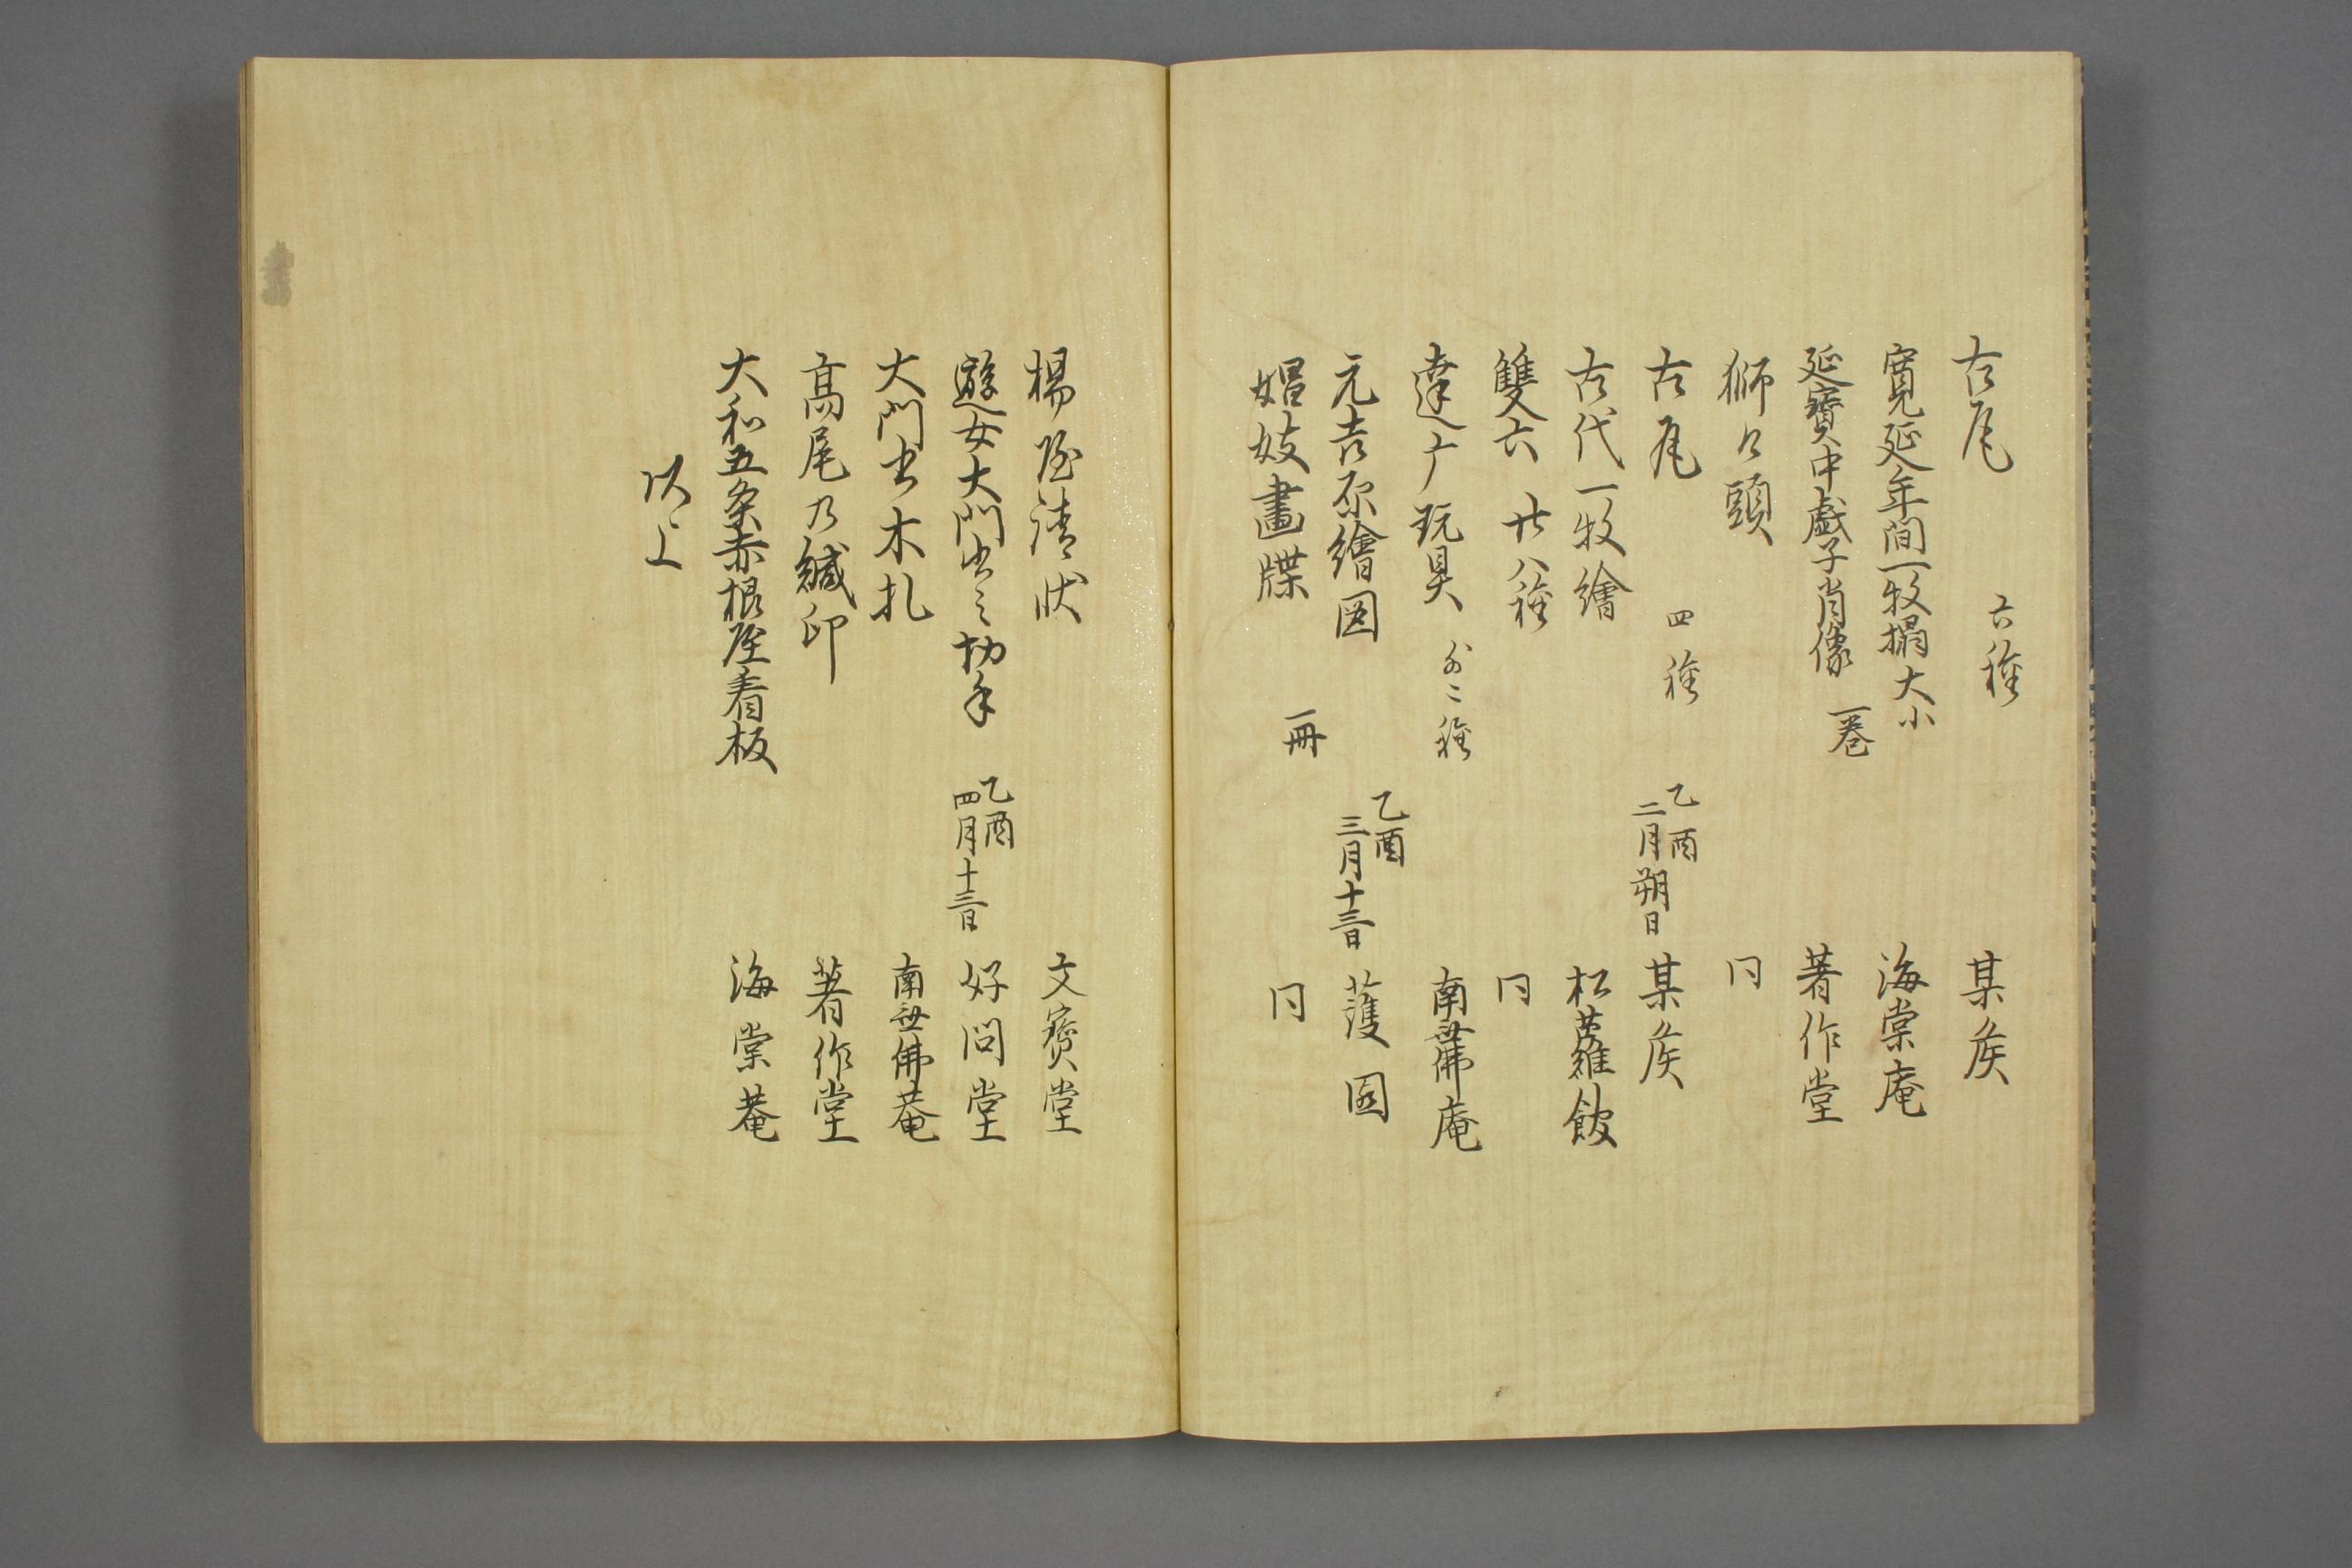 古瓦 六種 某侯
寛延年間一枚摺大小 海棠庵
延寶中戯子肖像 一巻 著作堂
獅々頭 同
古瓦 四種 乙酉二月朔日 某侯
古代一枚繪 松蘿舘
雙六 廿八種 同
達广玩具 外ニ種 南無佛庵
元吉原繪図 乙酉三月十三日 護園
娼妓畫牒 一冊 同
揚屋清状 文寶堂
遊女大門出之切手 乙酉四月十三日 好問堂
大門出木札 南無佛菴
髙尾乃緘印 著作堂
大和五条赤根屋看板 海棠菴
以上